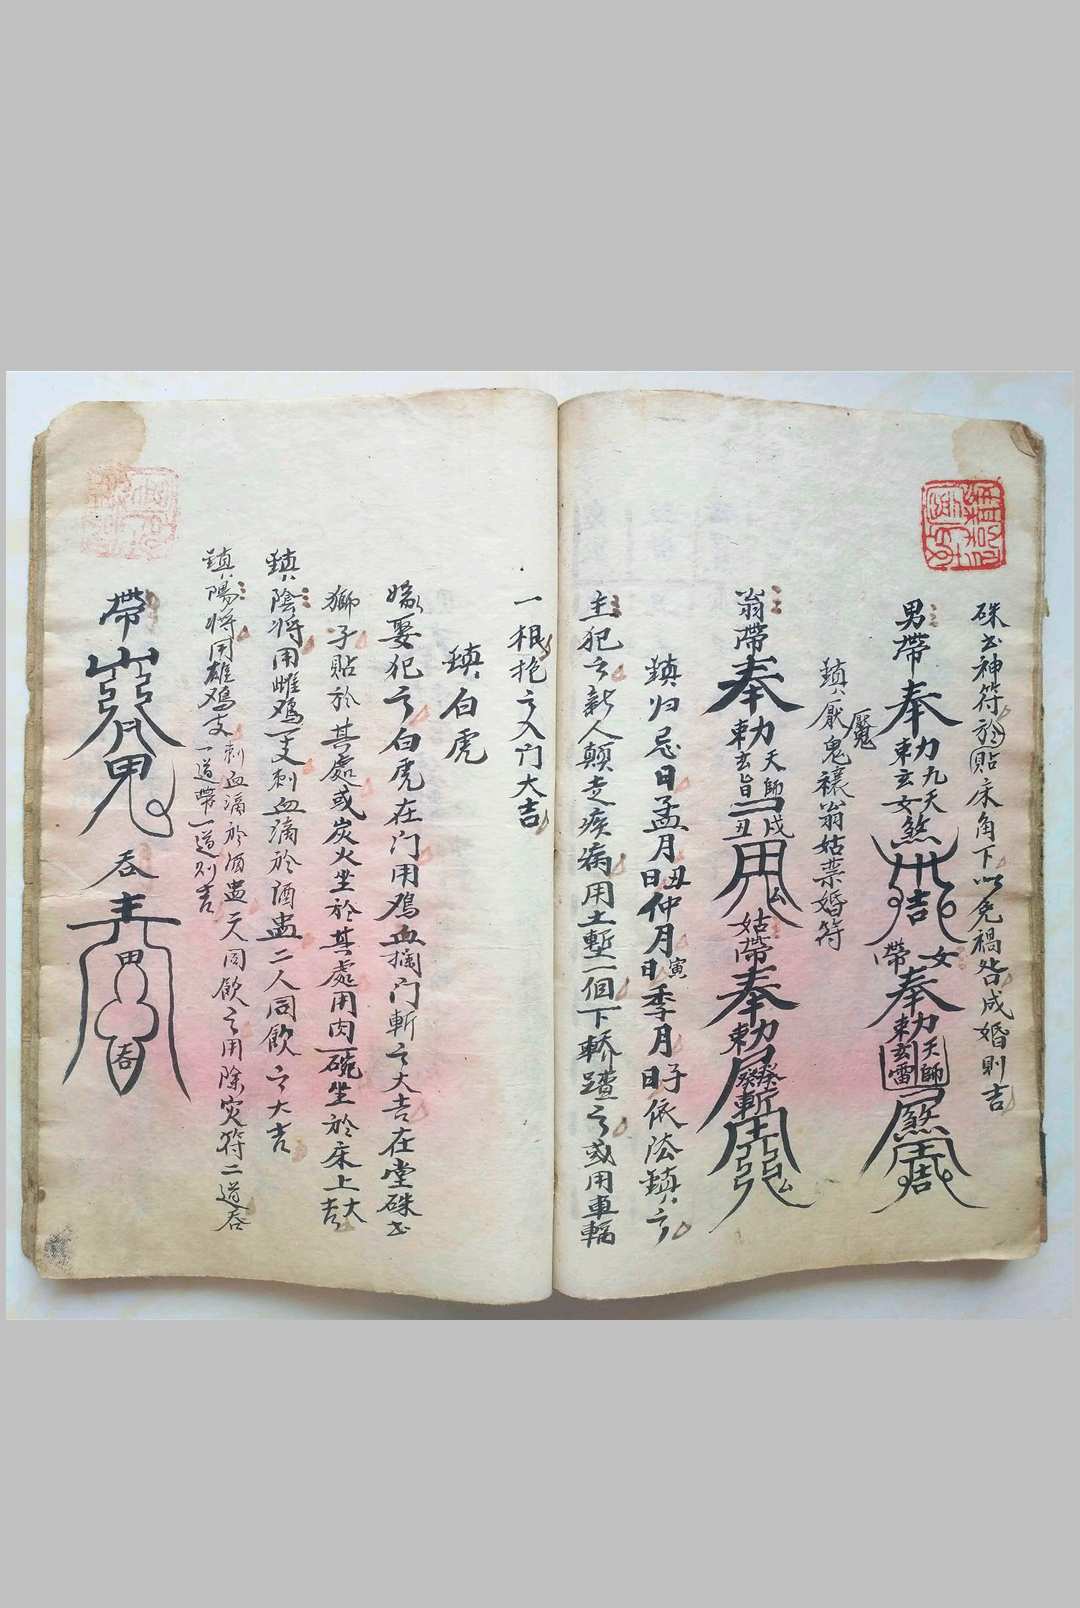 硃书神符於貼床角下以免禍咎成婚則吉
男帶 奉勅九天玄女煞
女帶 奉勅天師玄雷
鎮厭鬼魘禳翁姑業婚符
翁帶 奉勅天師玄旨
姑帶 奉勅
鎮归忌日孟月丑日仲月寅日季月子日依法鎮之
主犯之新人顛走疾病用土塹一個下轎蹅之或用車輻
一根抱之入门大吉
鎮白虎
嫁娶犯之白虎在门用鸡血攔门斬之大吉在堂硃书
獅子貼於其處或炭火坐於其處用肉一碗坐於床上大吉
鎮陰將用雌鸡一支刺血滴於酒盅二人同飲之大吉
鎮陽將用雄鸡一支刺血滴於酒盅二人同飲之用除灾符二道吞一道帶一道则吉
帶
吞